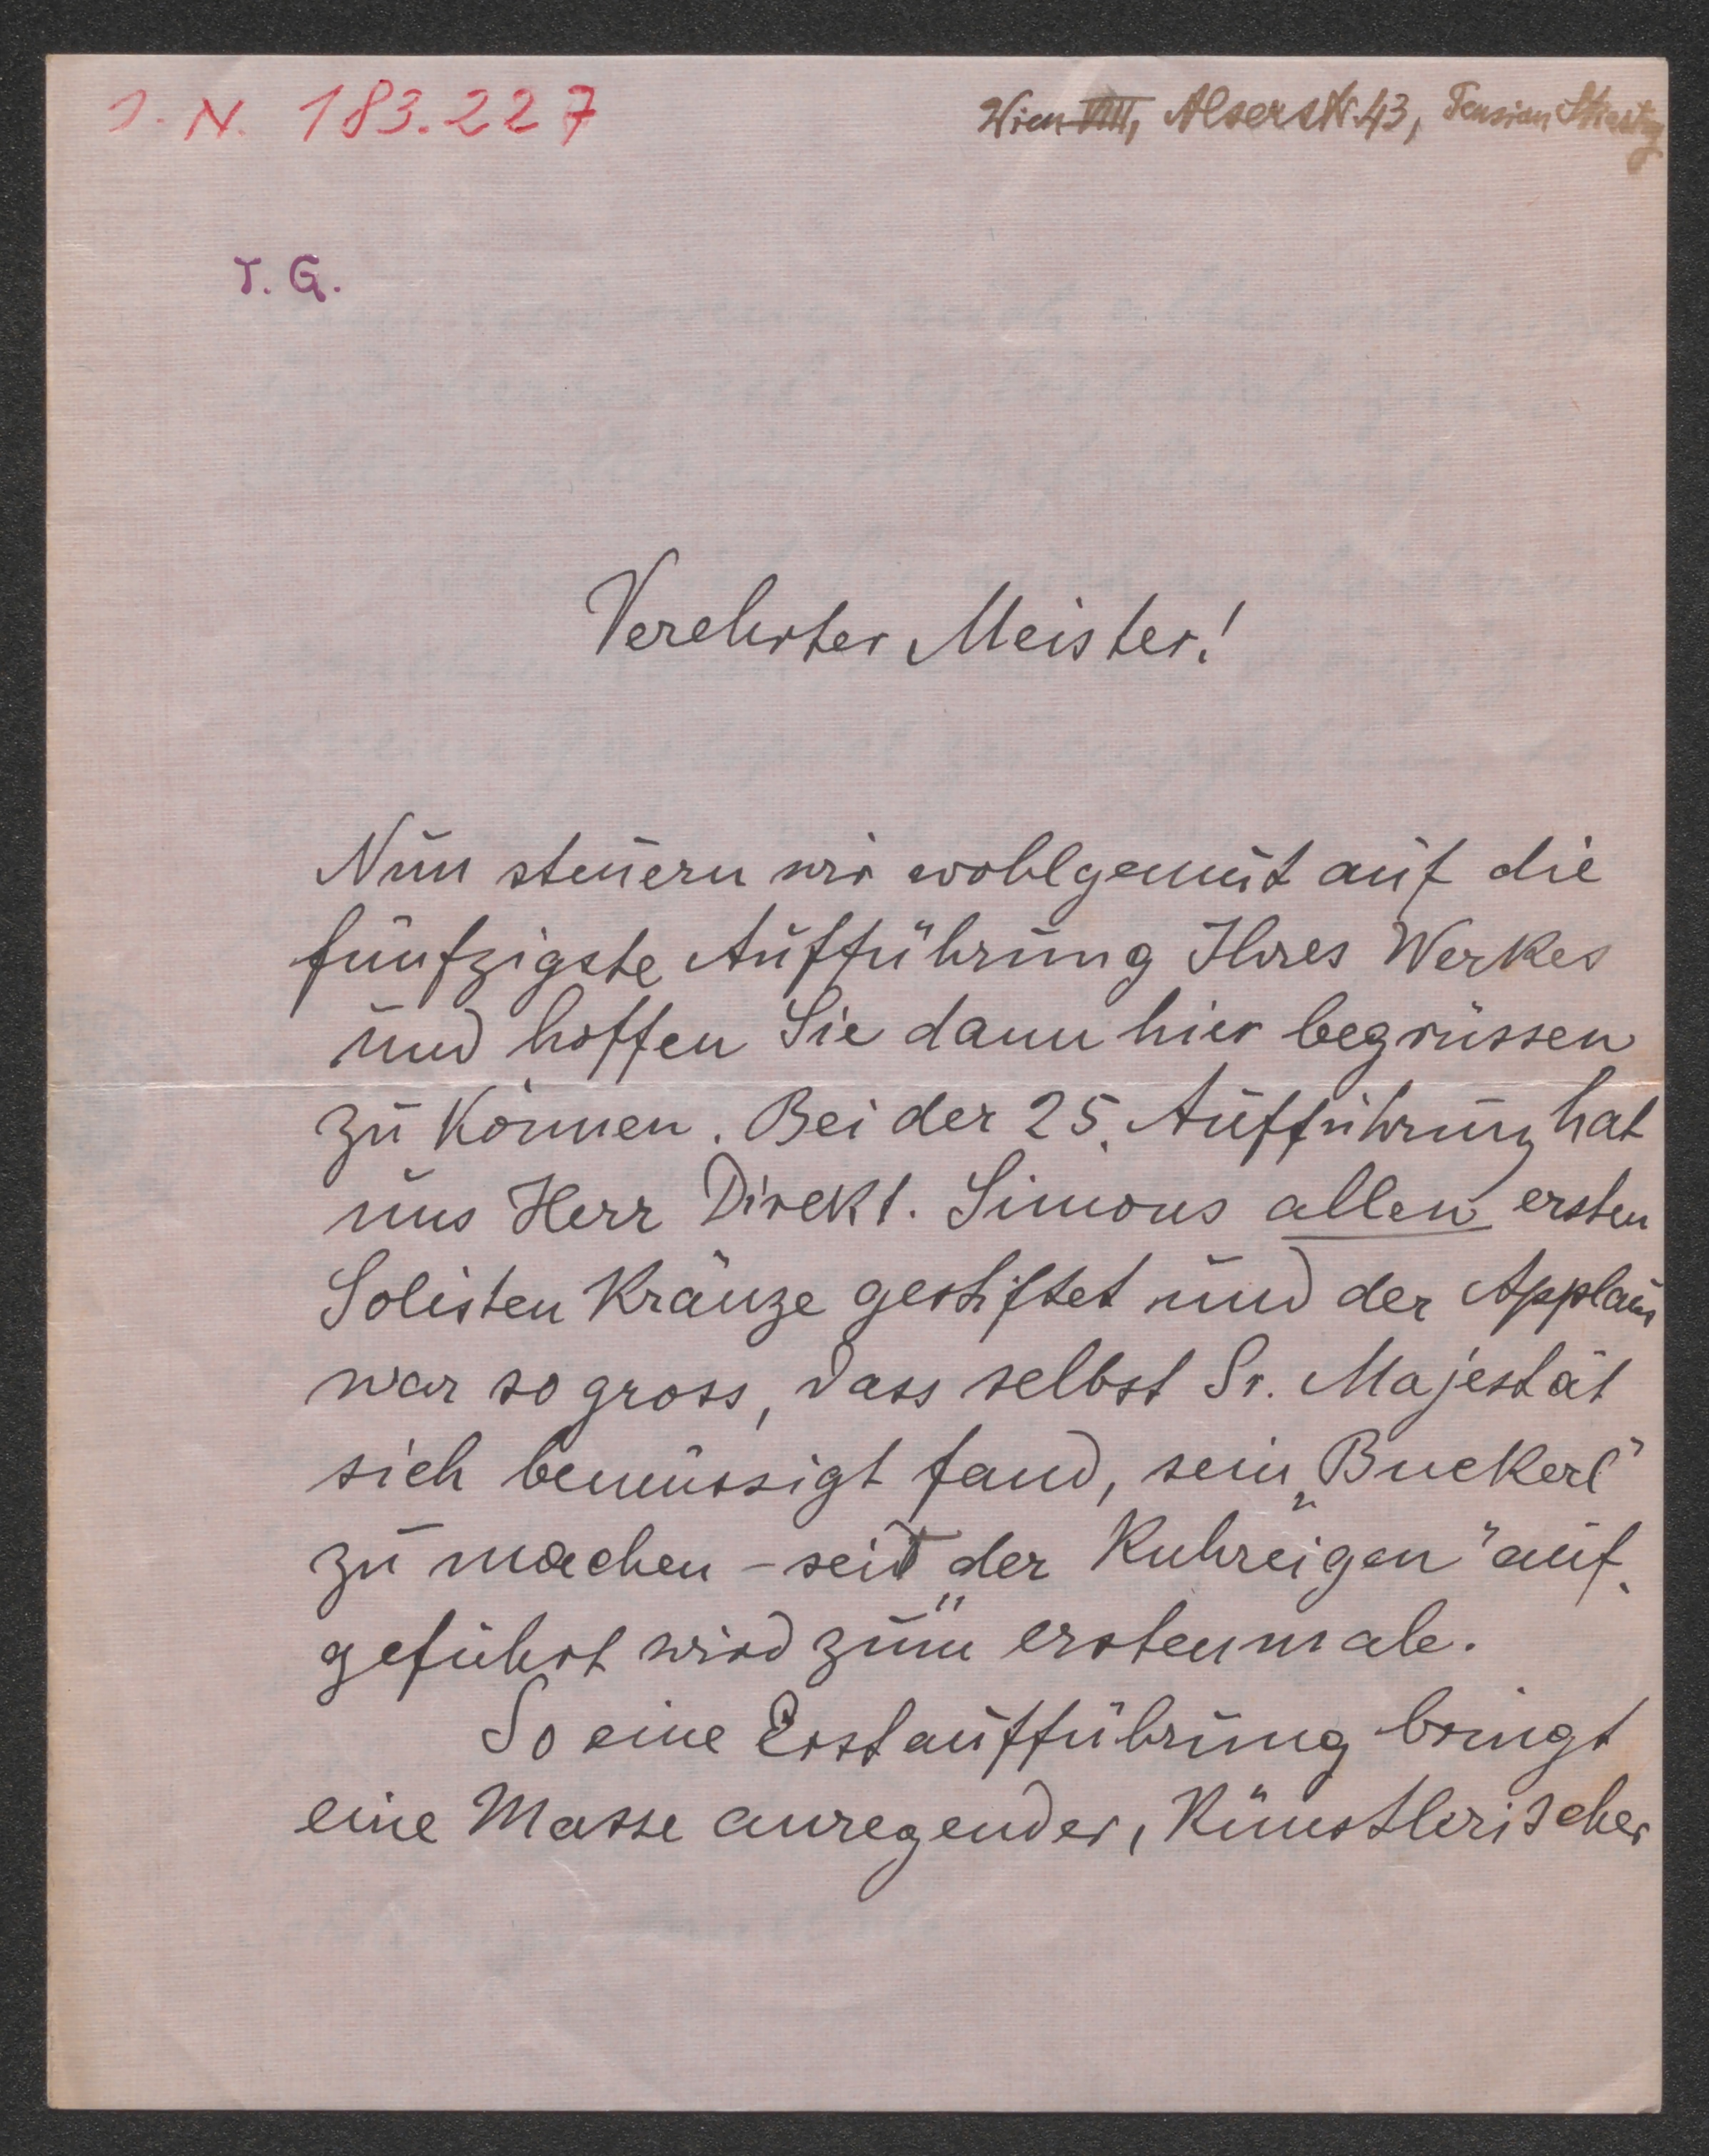 J. N. 183.227
Wien VIII, Alserstr. 43, Pension
T. G.
Verehrter Meister!
Nun steuern wir wohlgemut auf die
fünfzigste Aufführung Ihres Werkes
und hoffen Sie dann hier begrüssen
zu können. Bei der 25. Aufführung hat
uns Herr Direkt. Simons allen ersten
Solisten Kränze gestiftet und der Applaus
war so gross, dass selbst Sr. Majestät
sich bemüssigt fand, sein „Buckerl"
zu machen – seit „der Kuhreigen" auf-
geführt wird zum erstenmale.
So eine Erstaufführung bringt
eine Masse anregender, künstlerischer